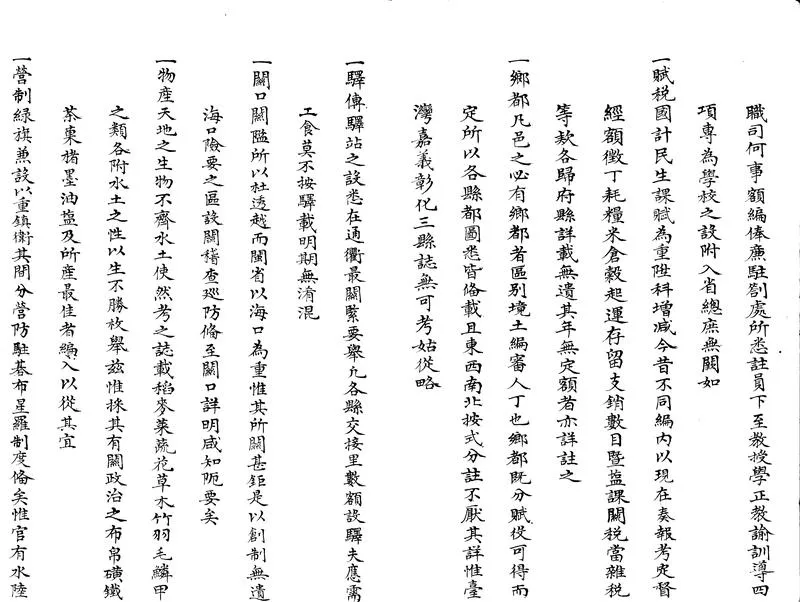 職司何事額編俸廉駐劄處所悉註員下至教授學正教諭訓導四
項專為學校之設附入省總庶無闕如
一賦稅國計民生課賦為重陞科增减今昔不同編内以現在奏報考定督
經額徵丁耗糧米倉穀起運存留支銷數目暨盐課關税當雜税
等款各歸府縣詳載無遺其年無定額者亦詳註之
一鄉都凡邑之必有鄉都者區别境土編審人丁也鄉都既分賦役可得而
定所以各縣都圖悉皆俻載且東西南北按式分註不厭其詳惟臺
灣嘉義彰化三縣誌無可考姑從略
一驛傳驛站之設悉在通衢最關緊要舉凡各縣交接里數額設驛夫應需
工食莫不按驛載明期無淆混
一關口關隘所以杜透越而閩省以海口為重惟其所關甚鉅是以創制無遺
海口險要之區設關稽查廵防俻至關口詳明咸知阨要矣
一物產天地之生物不齊水土使然考之誌載稻麥菜蔬花草木竹羽毛鱗甲
之類各附水土之性以生不勝枚舉兹惟採其有關政治之布帛磺鐵
茶棗楮墨油盐及所產最佳者編入以從其宜
一營制綠旗兼設以重鎮衛其間分營防駐碁布星羅制度俻矣惟官有水陸